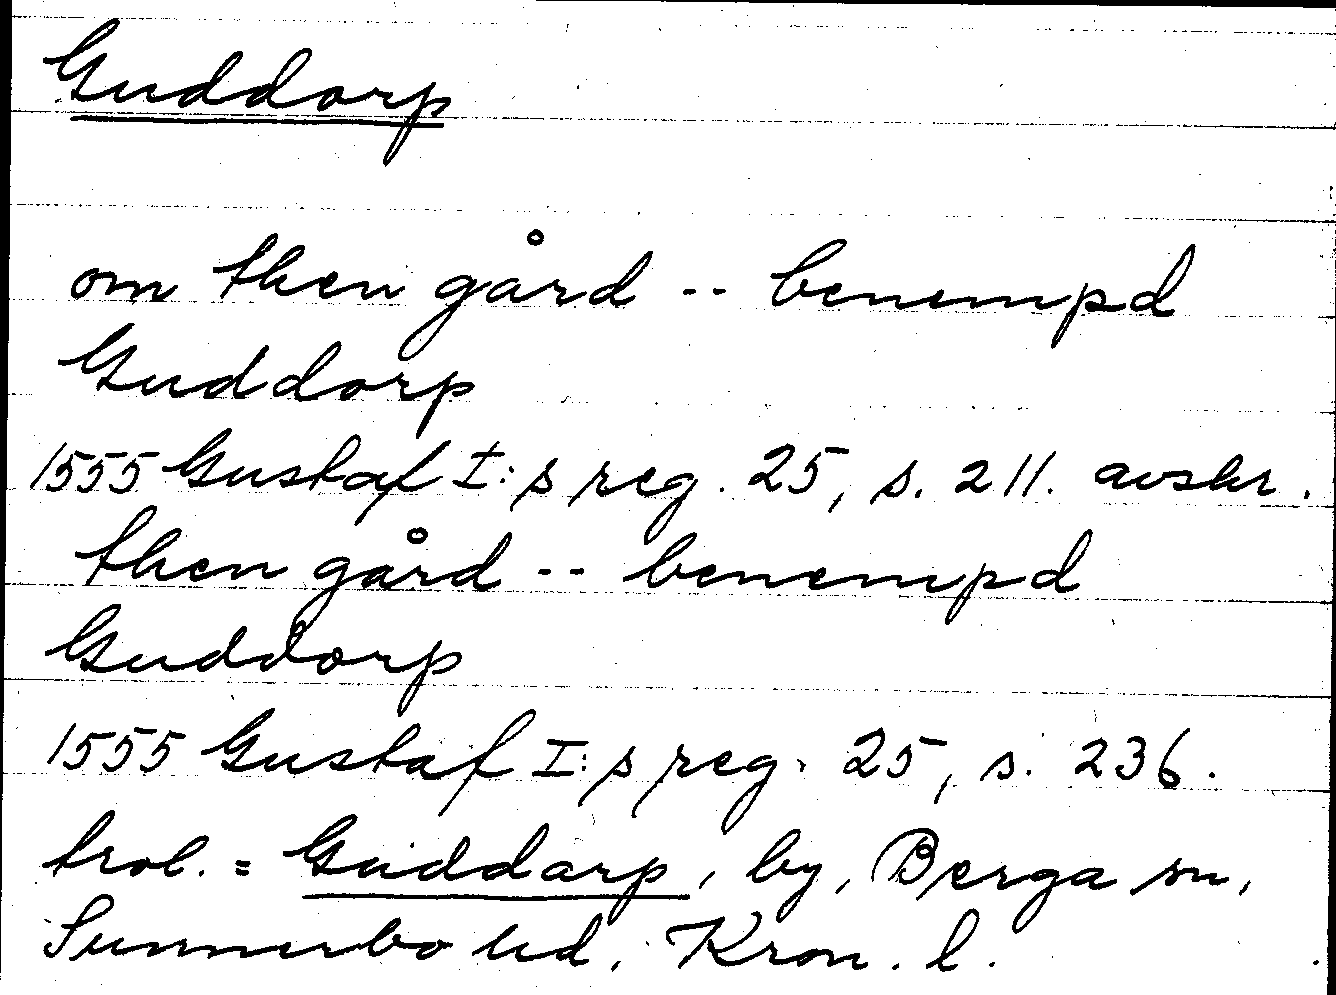 Guddorp
om then gård -- benempd
Guddorp
1555 Gustaf I:s reg. 25, s. 211. avskr.
then gård -- benempd
Guddorp
1555 Gustaf I:s reg. 25, s. 236.
trol. = Guddarp, by, Berga sn,
Sunnerbo hd, Kron. l.